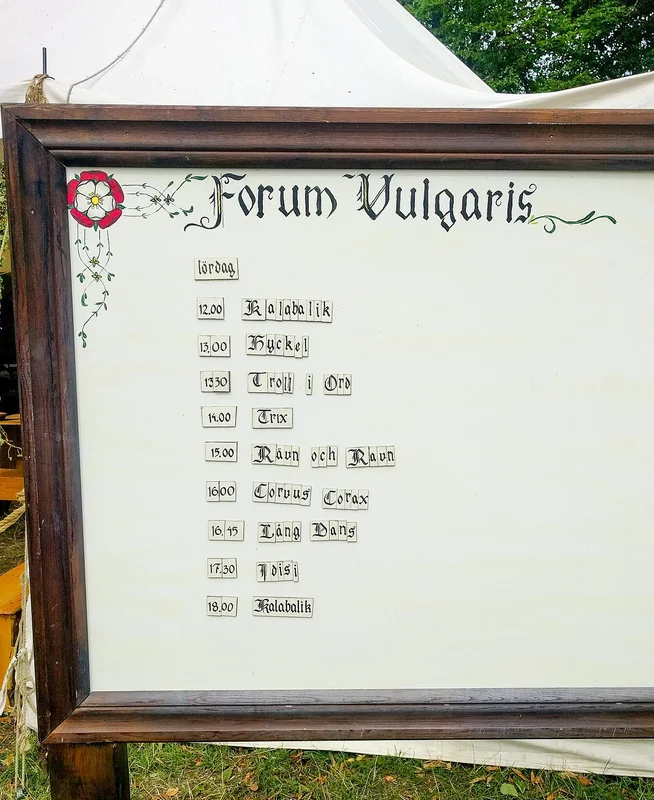 Forum Vulgaris
lördag
12.00 Kalabalik
13.00 Hyckel
13 30 Troll i Ord
14.00 Trix
15.00 Rävn och Ravn
16 00 Corvus Corax
16.45 Lång Dans
17.30 Idisi
18.00 Kalabalik